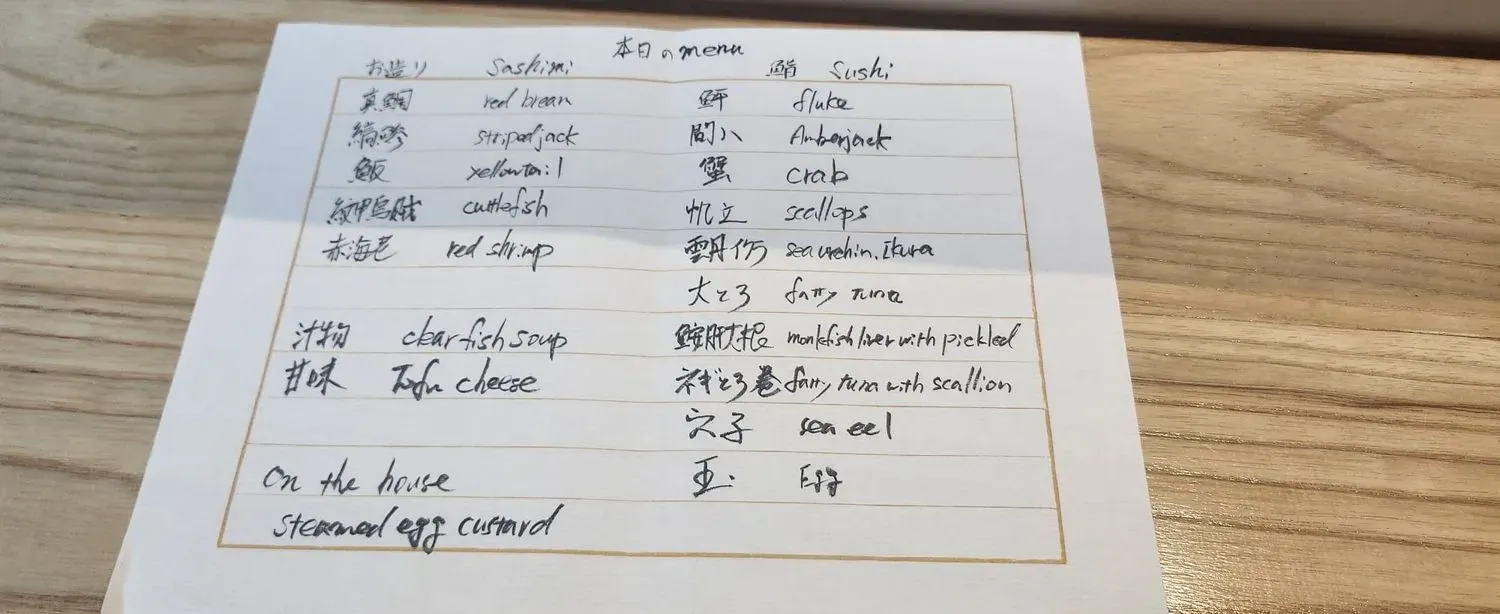 本日のmenu
お造り Sashimi
真鯛 red brean
縞鯵 stripedjack
鰤 yellowtail
紋甲烏賊 cuttlefish
赤海老 red shrimp
汁物 clear fish soup
甘味 Tofu cheese
On the house
steamed egg custard
鮨 Sushi
鮃 fluke
間八 Amberjack
蟹 crab
帆立 scallops
雲丹 sea urchin. Ikura
大とろ fatty tuna
鮟肝大根 monkfish liver with pickled
ネギとろ巻 fatty tuna with scallion
穴子 sea eel
玉 Egg